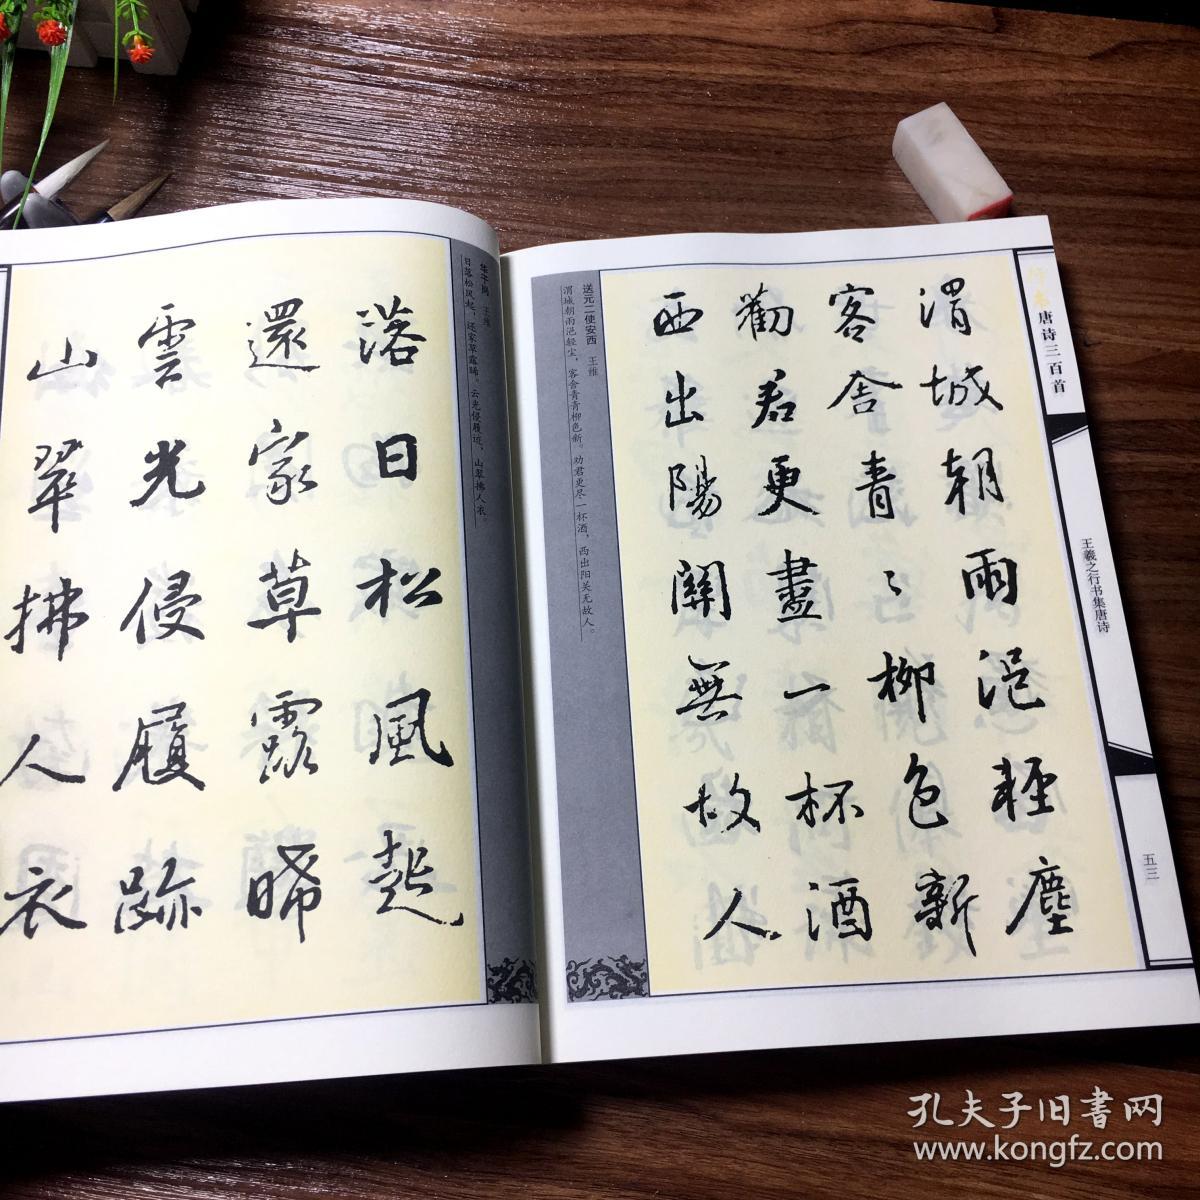 行书唐诗三百首
王羲之行书集唐诗
五三
渭城朝雨浥輕塵
客舍青〻柳色新
勸君更盡一杯酒
西出陽關無故人
送元二使安西 王维
渭城朝雨浥轻尘，客舍青青柳色新。劝君更尽一杯酒，西出阳关无故人。
华子岗 王维
日落松风起，还家草露晞。云光侵履迹，山翠拂人衣。
落日松風起
還家草露晞
雲光侵履跡
山翠拂人衣
孔夫子旧書网
www.kongfz.com